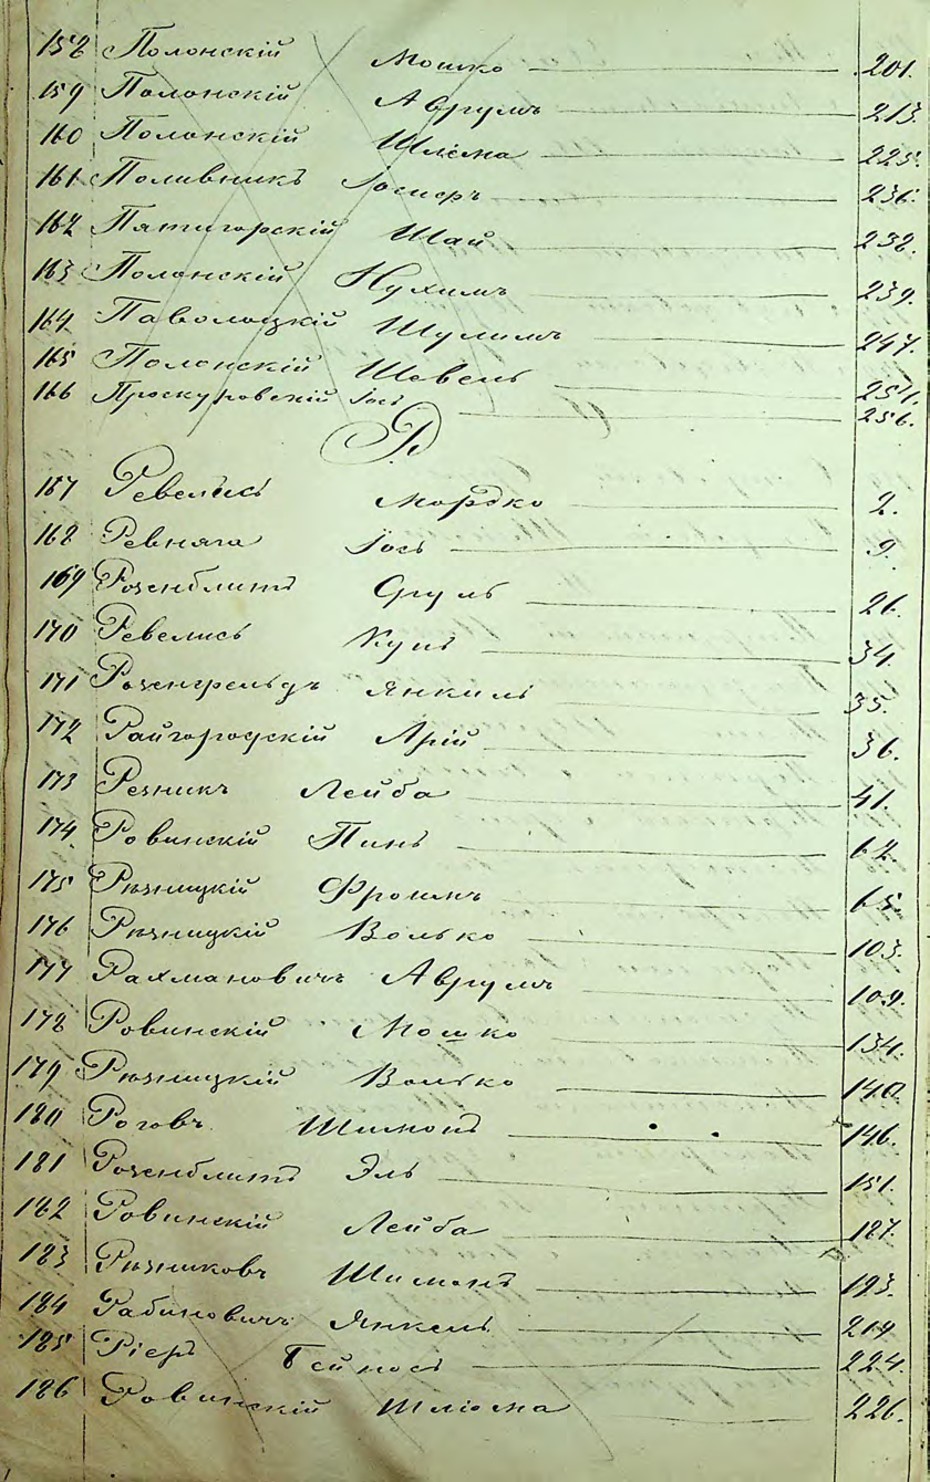 158 Полонскій Мошко 201.
159 Полонскій Аврумъ 213.
160 Полонскій Шлёма 225.
161 Поливникъ Іосифъ 236.
162 Пятигорскій Шая 238.
163 Полонскій Нухимъ 239.
164 Паволоцкій Шулимъ 247.
165 Полонскій Шевель 254.
166 Проскуровскій Іось 256.
Р.
167 Ревелисъ Мордко 2.
168 Ревняга Іось 9.
169 Розенблитъ Сруль 26.
170 Ревелисъ Куна 34.
171 Розенфельдъ Янкиль 35.
172 Райгородскій Арій 36.
173 Резникъ Лейба 41.
174 Ровинскій Пинь 62.
175 Рѣзницкій Фроимъ 65.
176 Рѣзницкій Волько 103.
177 Рахмановичъ Аврумъ 109.
178 Ровинскій Мошко 134.
179 Рѣзницкій Волько 140.
180 Роговъ Шимонъ 146.
181 Розенблитъ Эль 151.
182 Ровинскій Лейба 187.
183 Рѣзниковъ Шимонъ 193.
184 Рабиновичъ Янкель 219
185 Ріеръ Бейнось 224.
186 Ровинскій Шліома 226.